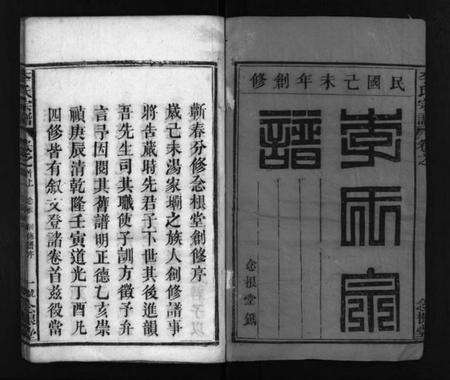 民國己未年創修
李氏宗譜
念根堂鐫
蘄春分修念根堂創修序
歲己未湯家壪之族人創修譜事
將吉蕆時先君子下世其後進韻
吾先生司其職使子訓方徵予弁
言予因閱其舊譜明正德乙亥崇
禎庚辰清乾隆壬寅道光丁酉凡
四修皆有叙文登諸卷首茲役當